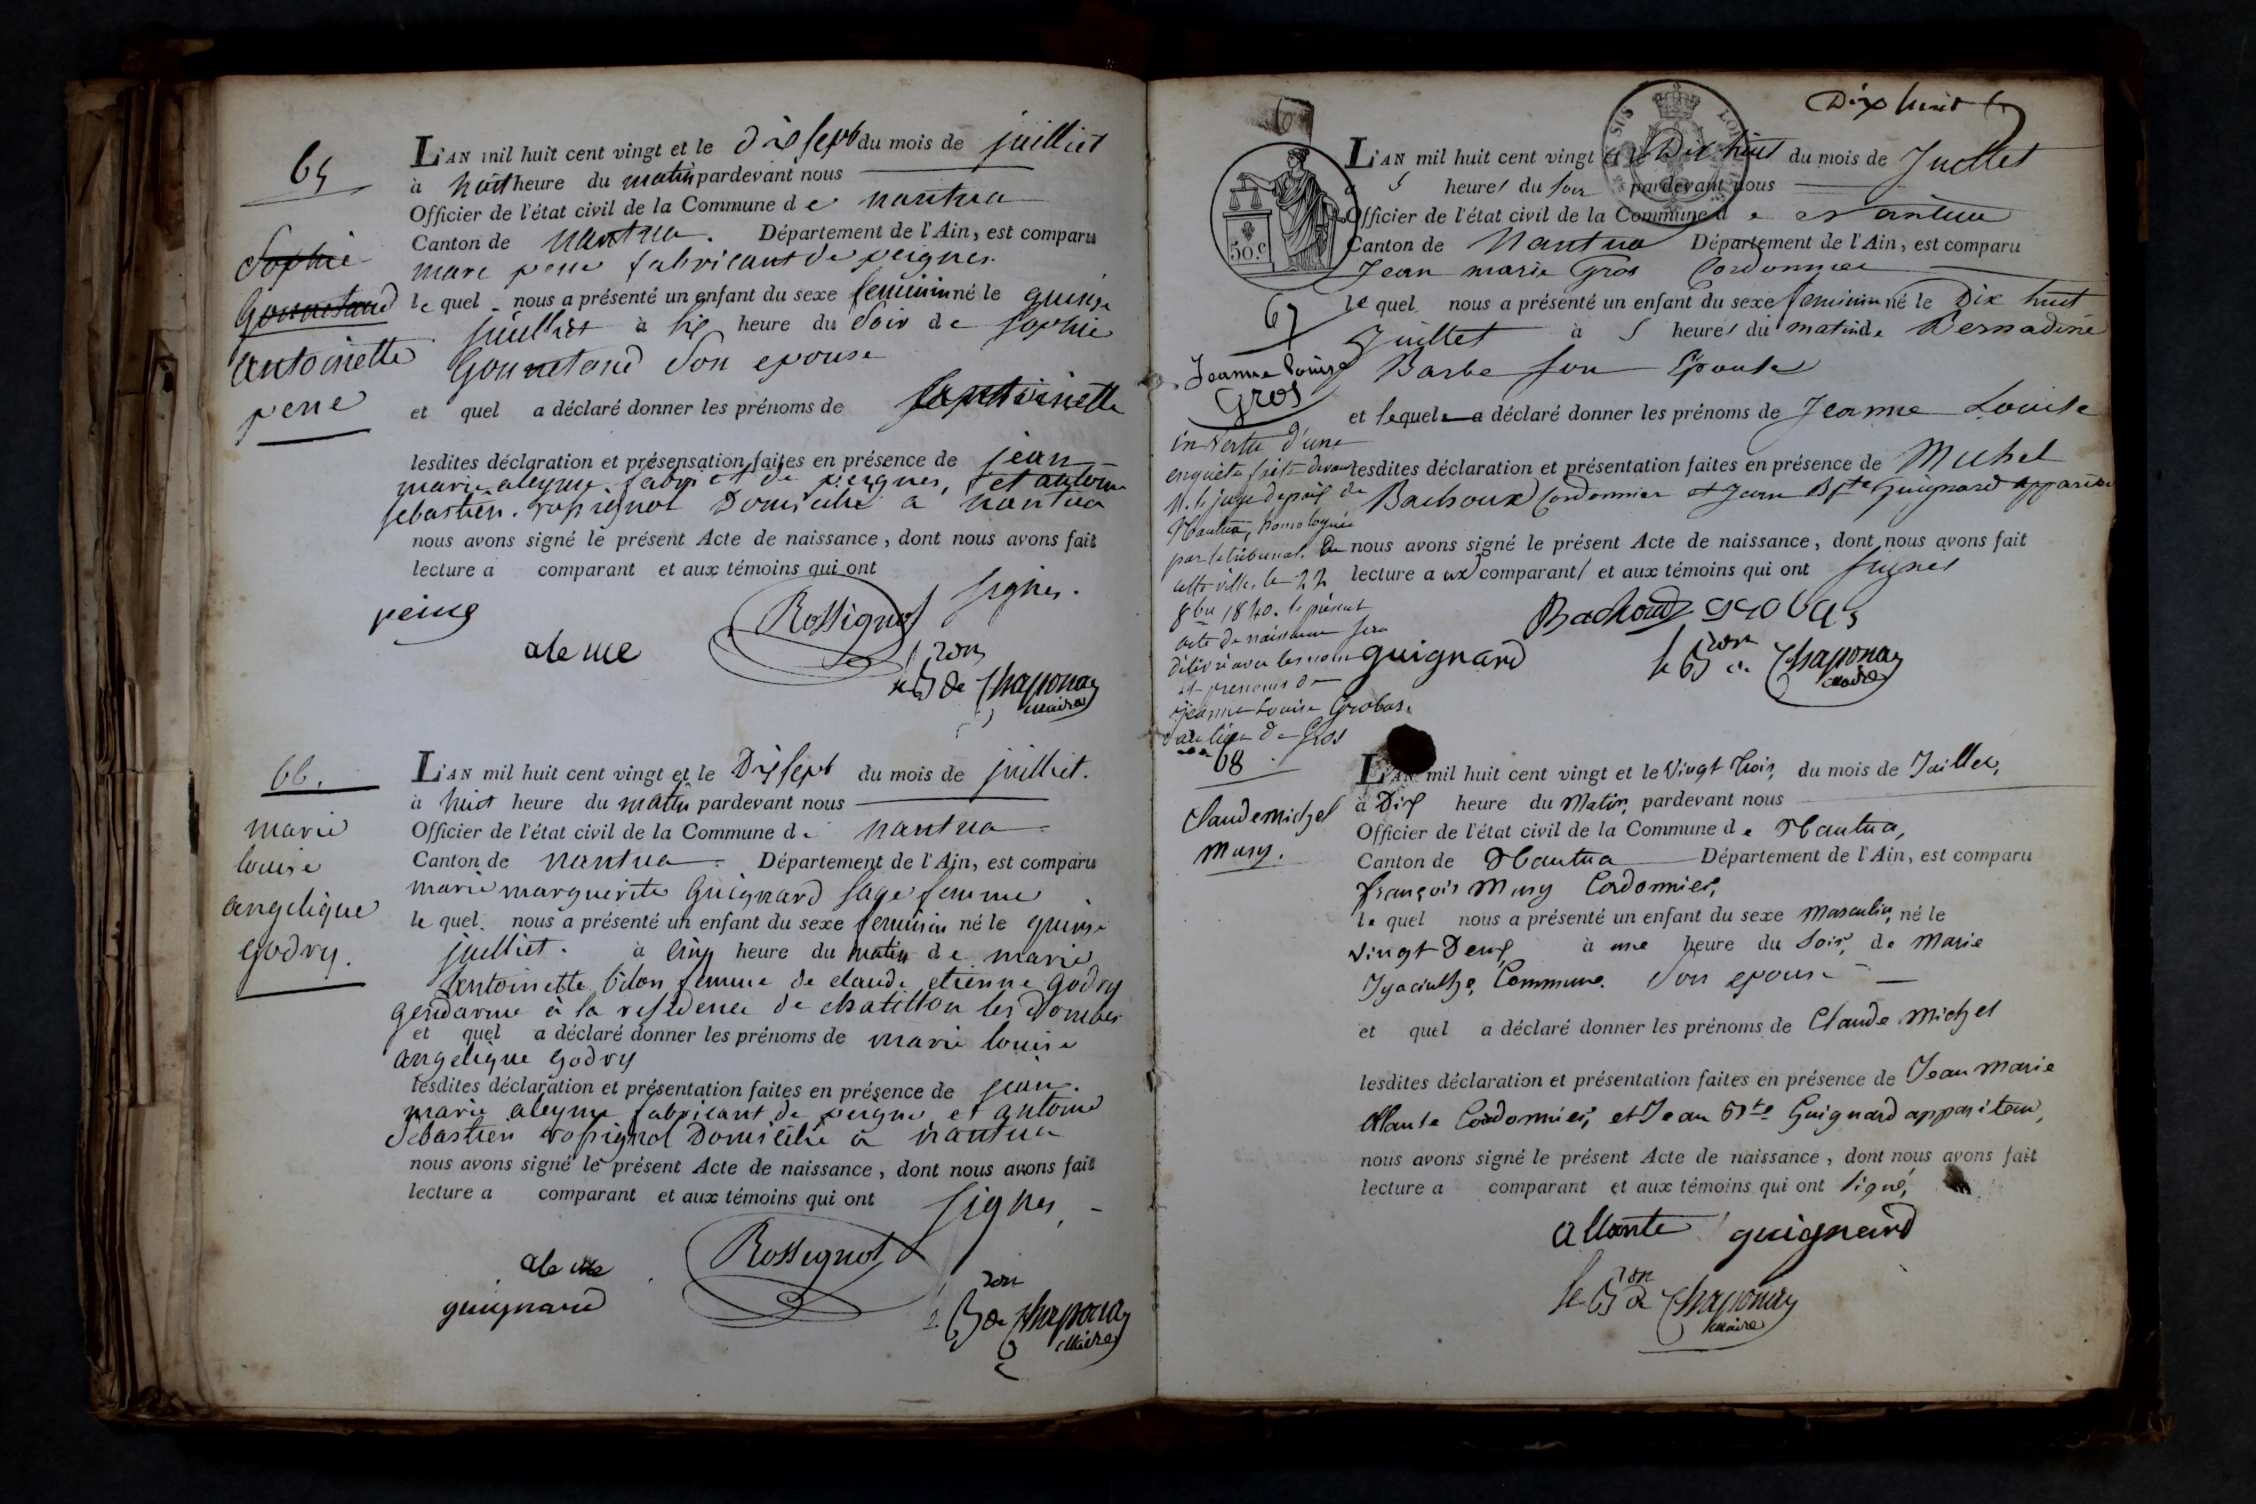 65
Sophie
Gonnetand
antoinette
pene
L'AN mil huit cent vingt et le dix sept du mois de juilliet
à huit heure du matin pardevant nous
Officier de l'état civil de la Commune d e nantua
Canton de nantua. Département de l'Ain, est comparu
marc pene fabricant de peignes
le quel nous a présenté un enfant du sexe feminin né le quinze
juilliet à six heure du Soir de Sophie
Gonnetand Son epouse
et quel a déclaré donner les prénoms de antoinette
lesdites déclaration et présensation faites en présence de jean
marie aleyme fabrict de peignes, et antoine
Sebastien rossignol Domicilié à nantua
nous avons signé le présent Acte de naissance, dont nous avons fait
lecture a comparant et aux témoins qui ont signes.
peine
aleme
Rossignol
le Bon de Chaponay
Maire
66.
marie
louise
angelique
godry.
L'AN mil huit cent vingt et le Dix sept du mois de juilliet.
à huit heure du matin pardevant nous
Officier de l'état civil de la Commune de nantua
Canton de nantua. Département de l'Ain, est comparu
marie marguerite Guignard Sage femme
le quel. nous a présenté un enfant du sexe feminin né le quinze
juilliet. à cinq heure du matin de marie
antoinette bilon femme de claude etienne godry
gendarme à la residence de chatillon les Dombes
et quel a déclaré donner les prénoms de marie louise
angelique godry
lesdites déclaration et présentation faites en présence de jean.
marie aleyme fabricant de peigne et antoine
Sebastien rossignol Domicilié à nantua
nous avons signé le présent Acte de naissance, dont nous avons fait
lecture a comparant et aux témoins qui ont signes
aleme
Rossignol
guignard
le Bon de Chaponay
Maire
Dix huit
50 c.
67
Jeanne Louise
Gros
in vertu d'une
enquête faite devant
M. le juge de paix de
Nantua, homologuée
par le tribunal de
cette ville, le 22
8bre 1840. le présent
acte de naissance sera
délivré avec les nom
et prenoms de
jeanne Louise Grobas.
au lieu de Gros
L'AN mil huit cent vingt et le Dix huit du mois de Juillet
à 5 heures du Soir pardevant nous
Officier de l'état civil de la Commune d e Nantua
Canton de Nantua Département de l'Ain, est comparu
Jean marie Gros Cordonnier
le quel nous a présenté un enfant du sexe feminin né le Dix huit
Juillet à 5 heures du matin de Bernadine
Barbe son Epouse
et lequel a déclaré donner les prénoms de Jeanne Louise
lesdites déclaration et présentation faites en présence de Michel
Bachoux Cordonnier et Jean Bte Guignard appariteur
nous avons signé le présent Acte de naissance, dont nous avons fait
lecture a ux comparant/ et aux témoins qui ont signes
Bachoux grobas
guignard
le Bon de Chaponay
Maire
68
Claude michel
Musy.
L'AN mil huit cent vingt et le Vingt trois, du mois de Juillet,
à Dix heure du Matin, pardevant nous
Officier de l'état civil de la Commune d e Nantua,
Canton de Nantua Département de l'Ain, est comparu
françois Musy Cordonnier,
le quel nous a présenté un enfant du sexe Masculin, né le
vingt Deux, à une heure du Soir, de Marie
Hyacinthe, Commune. Son epouse
et quel a déclaré donner les prénoms de Claude Michel
lesdites déclaration et présentation faites en présence de Jean Marie
Allante Cordonnier, et Jean Bte Guignard appariteur,
nous avons signé le présent Acte de naissance, dont nous avons fait
lecture a comparant et aux témoins qui ont signé,
allante guignard
le Bon de Chaponay
Maire